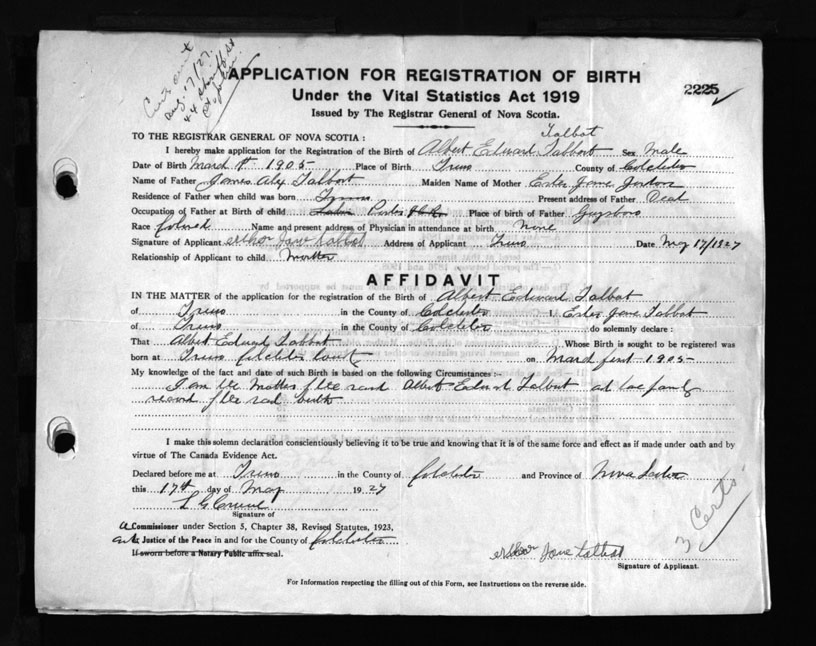 APPLICATION FOR REGISTRATION OF BIRTH
2225
Under the Vital Statistics Act 1919
Issued by The Registrar General of Nova Scotia.
TO THE REGISTRAR GENERAL OF NOVA SCOTIA :
Talbot
I hereby make application for the Registration of the Birth of Albert Edward Talbot Sex Male
Date of Birth March 1st 1905 Place of Birth Truro County of Colchester
Name of Father James Alex Talbot Maiden Name of Mother Ester Jane Jordan
Residence of Father when child was born Truro Present address of Father Dead
Occupation of Father at Birth of child Porter Place of birth of Father Guysboro
Race Colored Name and present address of Physician in attendance at birth None
Signature of Applicant Jane talbot Address of Applicant Truro Date May 17/1927
Relationship of Applicant to child Mother
AFFIDAVIT
IN THE MATTER of the application for the registration of the Birth of Albert Edward Talbot
of Truro in the County of Colchester I, Ester Jane Talbot
of Truro in the County of Colchester do solemnly declare :
That Albert Edward Talbot Whose Birth is sought to be registered was
born at Truro Colchester County on March first 1905
My knowledge of the fact and date of such Birth is based on the following Circumstances :-
I am the Mother of the said Albert Edward Talbot and have family
record of the said birth
I make this solemn declaration conscientiously believing it to be true and knowing that it is of the same force and effect as if made under oath and by
virtue of The Canada Evidence Act.
Declared before me at Truro in the County of Colchester and Province of Nova Scotia
this 17th day of May 1927
Signature of
A Commissioner under Section 5, Chapter 38, Revised Statutes, 1923,
Justice of the Peace in and for the County of Colchester
If sworn before a Notary Public affix seal.
3 Certs
Jane talbot
Signature of Applicant.
For Information respecting the filling out of this Form, see Instructions on the reverse side.